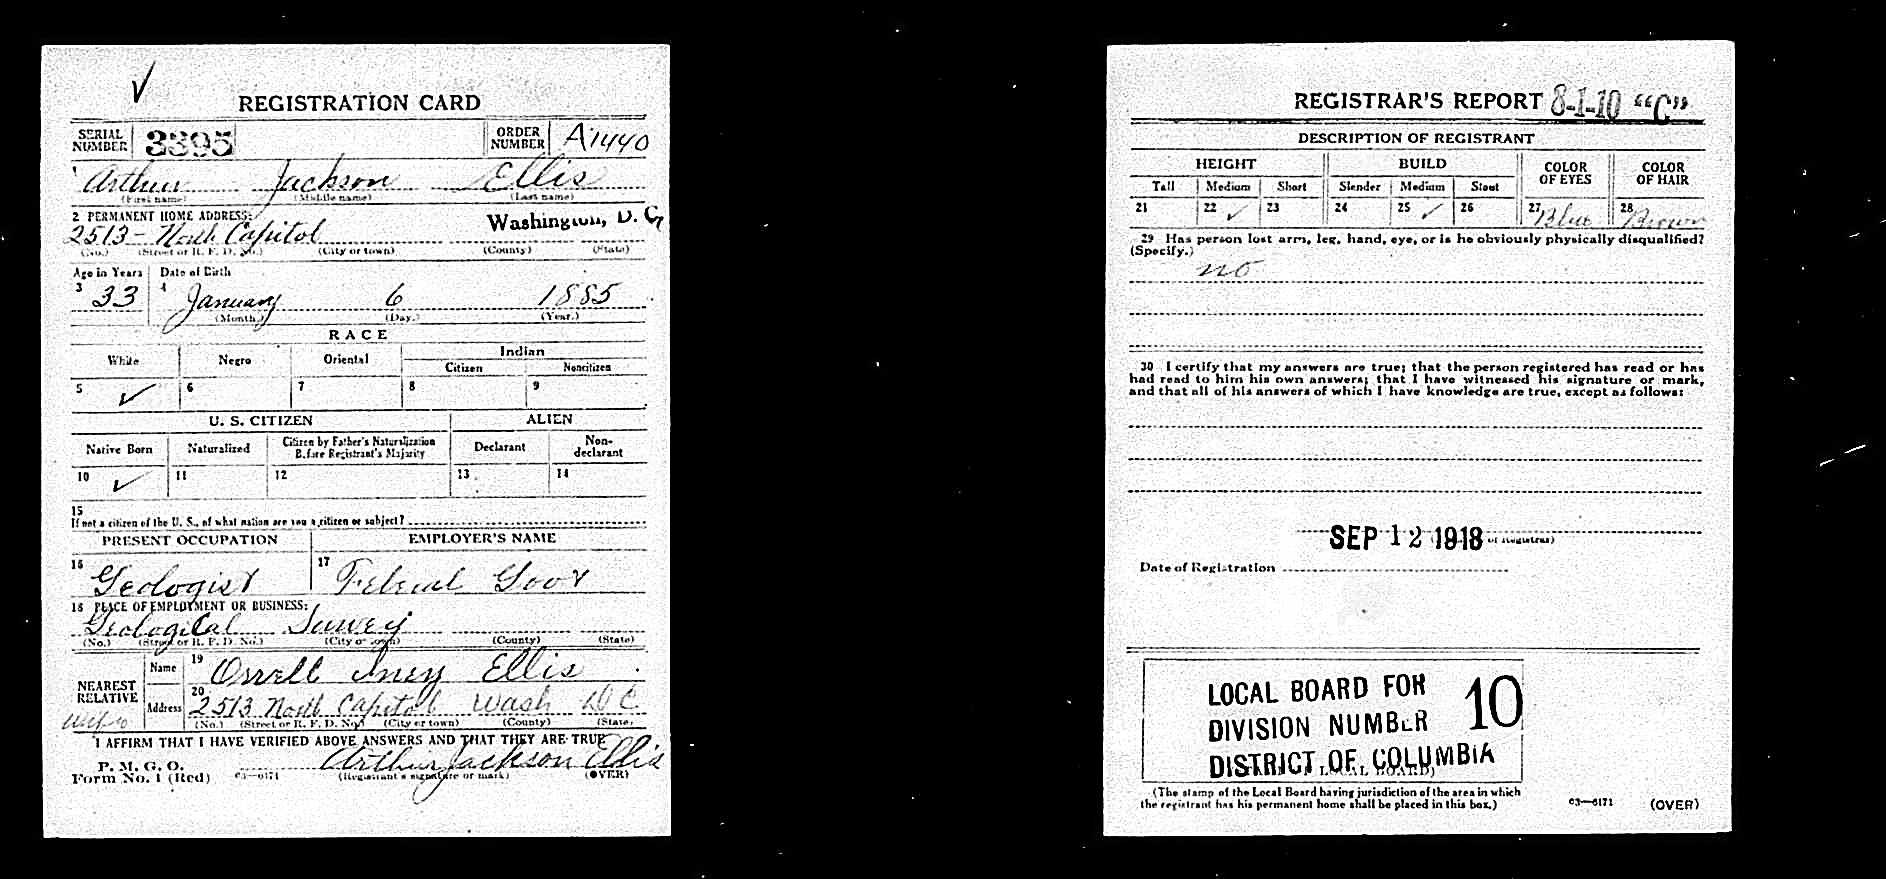 REGISTRATION CARD
SERIAL NUMBER 3395 ORDER NUMBER A1440
1 Arthur Jackson Ellis
(First name) (Middle name) (Last name)
2 PERMANENT HOME ADDRESS:
2513- North Capitol Washington, D. C.
(No.) (Street or R. F. D. No.) (City or town) (County) (State)
Age in Years Date of Birth
3 33 4 January 6 1885
(Month.) (Day.) (Year.)
RACE
White Negro Oriental Indian
Citizen Noncitizen
5 ✓ 6 7 8 9
U. S. CITIZEN ALIEN
Native Born Naturalized Citizen by Father's Naturalization Before Registrant's Majority Declarant Non-declarant
10 ✓ 11 12 13 14
15
If not a citizen of the U. S., of what nation are you a citizen or subject?
PRESENT OCCUPATION EMPLOYER'S NAME
16 Geologist 17 Federal Govt
18 PLACE OF EMPLOYMENT OR BUSINESS:
Geological Survey
(No.) (Street or R. F. D. No.) (City or town) (County) (State)
NEAREST RELATIVE Name 19 Ellis
wife Address 20 2513 North Capitol Wash D C
(No.) (Street or R. F. D. No.) (City or town) (County) (State)
I AFFIRM THAT I HAVE VERIFIED ABOVE ANSWERS AND THAT THEY ARE TRUE
P. M. G. O.
Form No. 1 (Red) 03—6171 Arthur Jackson Ellis
(Registrant's signature or mark) (OVER)
REGISTRAR'S REPORT 8-1-10 "C"
DESCRIPTION OF REGISTRANT
HEIGHT BUILD COLOR OF EYES COLOR OF HAIR
Tall Medium Short Slender Medium Stout
21 22 ✓ 23 24 25 ✓ 26 27 Blue 28 Brown
29 Has person lost arm, leg, hand, eye, or is he obviously physically disqualified?
(Specify.) no
30 I certify that my answers are true; that the person registered has read or has
had read to him his own answers; that I have witnessed his signature or mark,
and that all of his answers of which I have knowledge are true, except as follows:
SEP 12 1918 of Registrar)
Date of Registration
LOCAL BOARD FOR
DIVISION NUMBER 10
DISTRICT OF COLUMBIA
(The stamp of the Local Board having jurisdiction of the area in which
the registrant has his permanent home shall be placed in this box.)
03—6171 (OVER)